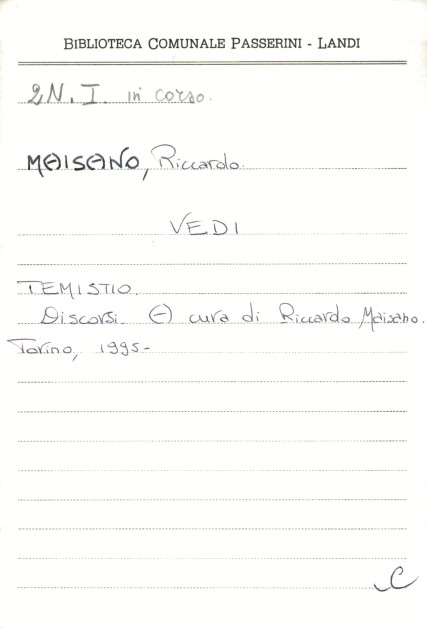 BIBLIOTECA COMUNALE PASSERINI - LANDI
2N. I. in corso.
MAISANO, Riccardo.
VEDI
TEMISTIO.
Discorsi. (-) cura di Riccardo Maisano.
Torino, 1995-
C